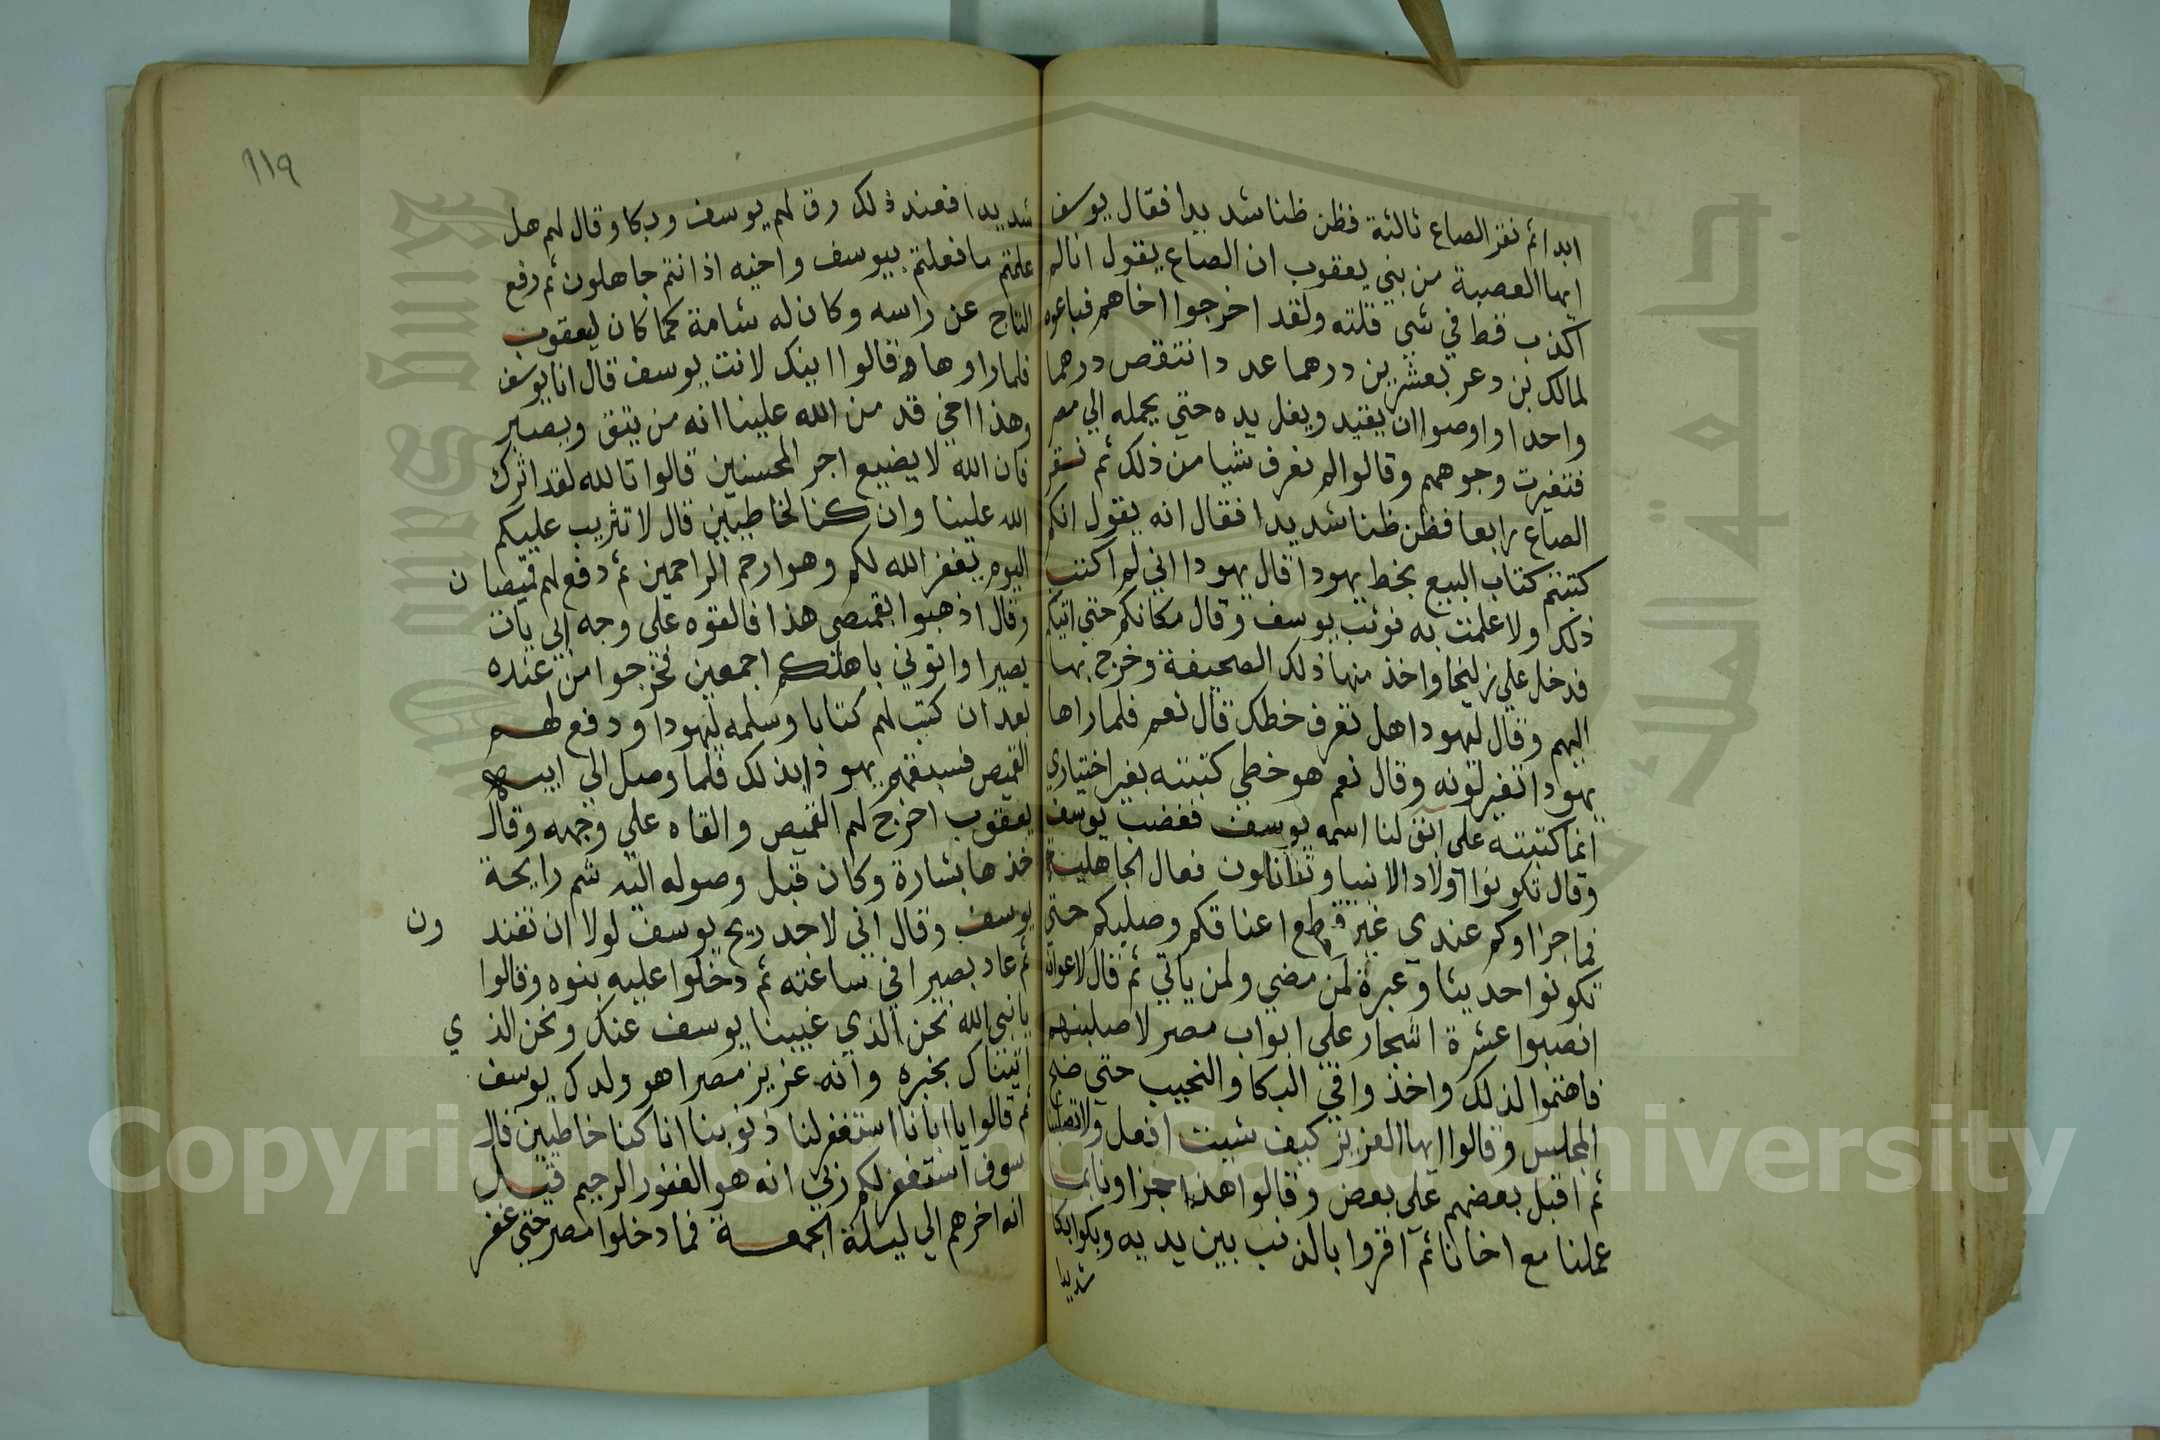 ابدا ثم نقر الصاع ثالثة فطن طنا شديدا فقال يوسف
ايها العصبة من بني يعقوب ان الصاع يقول اناله
اكذب قط في شي قلته ولقد اخرجوا اخاهم فباعوه
لمالك بن دعر بعشرين درهما عددا نتقص درهما
واحدا واوصوا ان يقيد ويغل يده حتي يحمله الي مصر
فتغيرت وجوههم وقالوا لم نعرف شيا من ذلك ثم نقر
الصاع رابعا فطن طنا شديدا فقال انه يقول انكم
كتبتم كتاب البيع بخط يهودا قال يهودا اني لم اكتب
ذلك ولا علمت به فوثب يوسف وقال مكانكم حتي اتيكم
فدخل علي زليخا واخذ منها ذلك الصحيفة وخرج بها
اليهم وقال ليهودا هل تعرف خطك قال نعم فلما راها
يهودا تغير لونه وقال نعم هو خطي كتبته بغير اختياري
انما كتبته على ابق لنا اسمه يوسف فغضب يوسف
وقال تكونوا اولاد الانبيا وتفعالون فعال الجاهلية
فما جزاوكم عندي غير قطع اعناقكم وصلبكم حتي
تكونوا حديثا وعبرة لمن مضي ولمن ياتي ثم قال لاعوانه
انصبوا عشرة اشجار علي ابواب مصر لاصلبنهم
فاهتموا لذلك واخذوا في البكا والنحيب حتي ضج
المجلس وقالوا ايها العزيز كيف شيت افعل ولا تصلبنا
ثم اقبل بعضهم على بعض وقالوا هذا جزاونا بما
عملنا مع اخانا ثم اقروا بالذنب بين يديه وبكوا بكا
شديدا
١١٩
شديدا فعند ذلك رق لهم يوسف وبكا وقال لهم هل
علمتم ما فعلتم بيوسف واخيه اذ انتم جاهلون ثم رفع
التاج عن راسه وكان له شامة كما كان ليعقوب
فلما راوها قالوا اينك لانت يوسف قال انا يوسف
وهذا اخي قد من الله علينا انه من يتق ويصبر
فان الله لا يضيع اجر المحسنين قالوا تالله لقد اثرك
الله علينا وان كنا لخاطيين قال لا تثريب عليكم
اليوم يغفر الله لكم وهو ارحم الراحمين ثم دفع لهم قميصا ن
وقال اذهبوا بقميصي هذا فالقوه على وجه ابي يات
بصيرا واتوني باهلكم اجمعين فخرجوا من عنده
بعد ان كتب لهم كتابا وسلمه ليهودا ودفع لهم
القميص فسبقهم يهوذا بذلك فلما وصل الي ابيه
يعقوب اخرج لهم القميص والقاه علي وجهه وقال
خذها بشارة وكان قبل وصوله اليه شم رايحة
يوسف وقال اني لاجد ريح يوسف لولا ان تفند ون
ثم عاد بصيرا في ساعته ثم دخلوا عليه بنوه وقالوا
يا نبي الله نحن الذي غيبنا يوسف عنك ونحن الذ ي
اتيناك بخبره وانه عزيز مصرا هو ولدك يوسف
ثم قالوا يا ابانا استغفر لنا ذنوبنا انا كنا خاطيين قال
سوف استغفر لكم ربي انه هو الغفور الرحيم قيل
انه اخرهم الي ليلة الجمعة فما دخلوا مصر حتي غفر
جامعة الملك
King Saud
Copyright © King Saud University